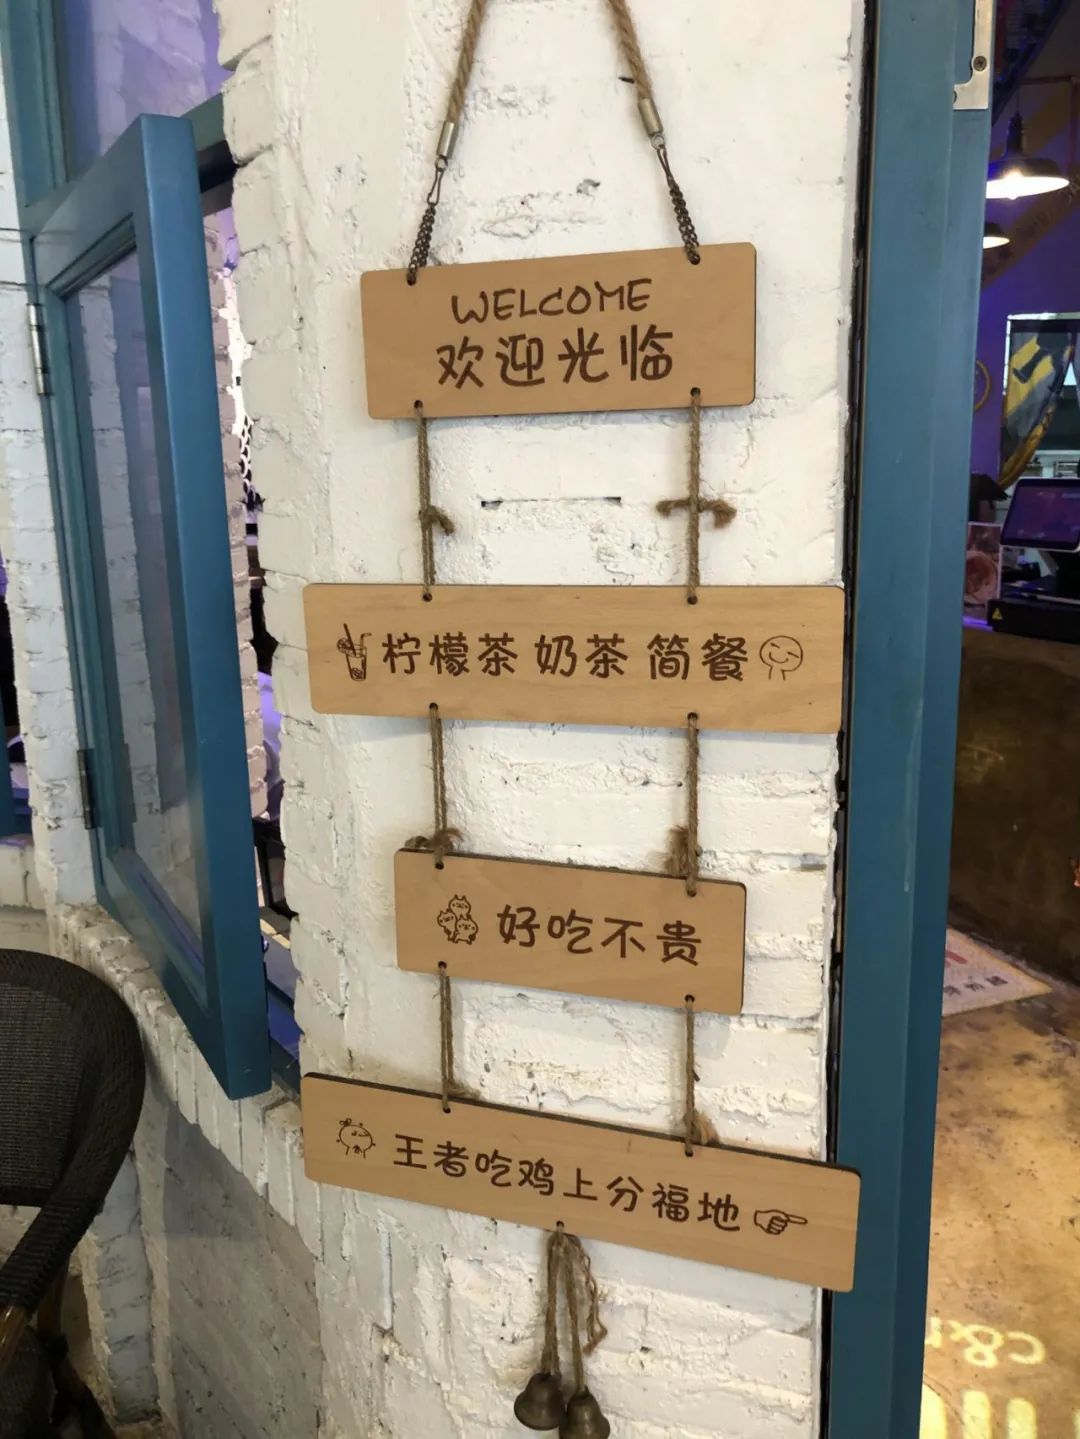 WELCOME
欢迎光临
柠檬茶 奶茶 简餐
好吃不贵
王者吃鸡上分福地